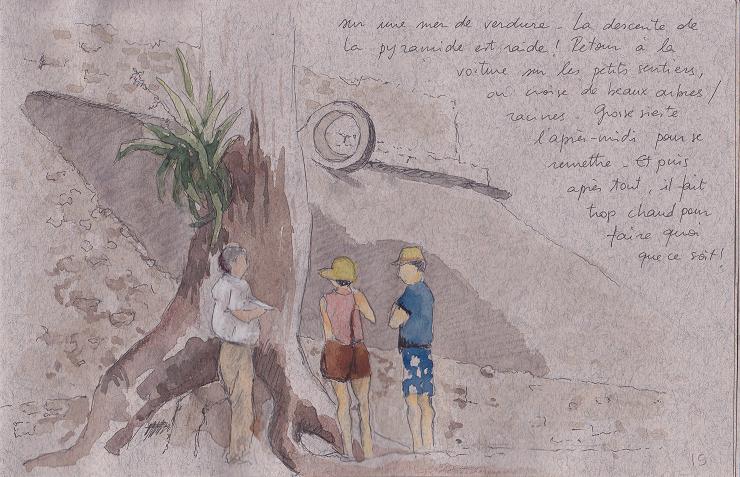 sur une mer de verdure - La descente de
la pyramide est raide ! Retour à la
voiture sur les petits sentiers,
on croise de beaux arbres /
racines. Grosse sieste
l'après-midi pour se
remettre - Et puis
après tout, il fait
trop chaud pour
faire quoi
que ce soit !
15